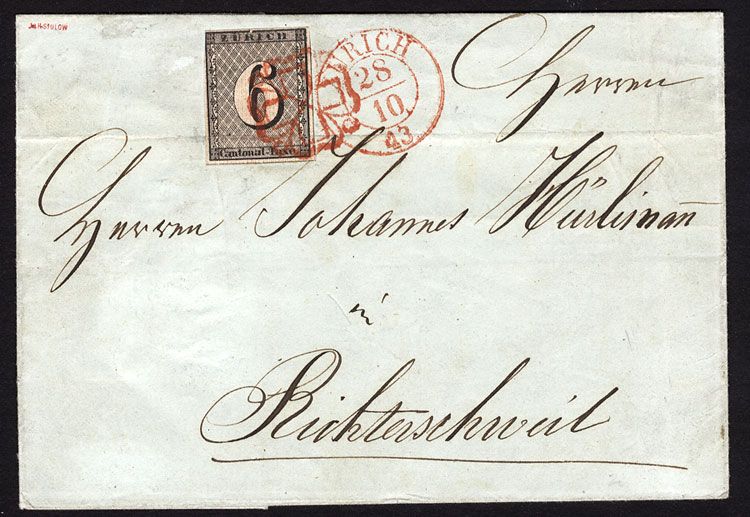 J. & H. STOLOW
ZÜRICH
6
Cantonal-Taxe.
ZÜRICH
28
10
43
Herren
Herren Johannes Hürlimann
in
Richterschweil